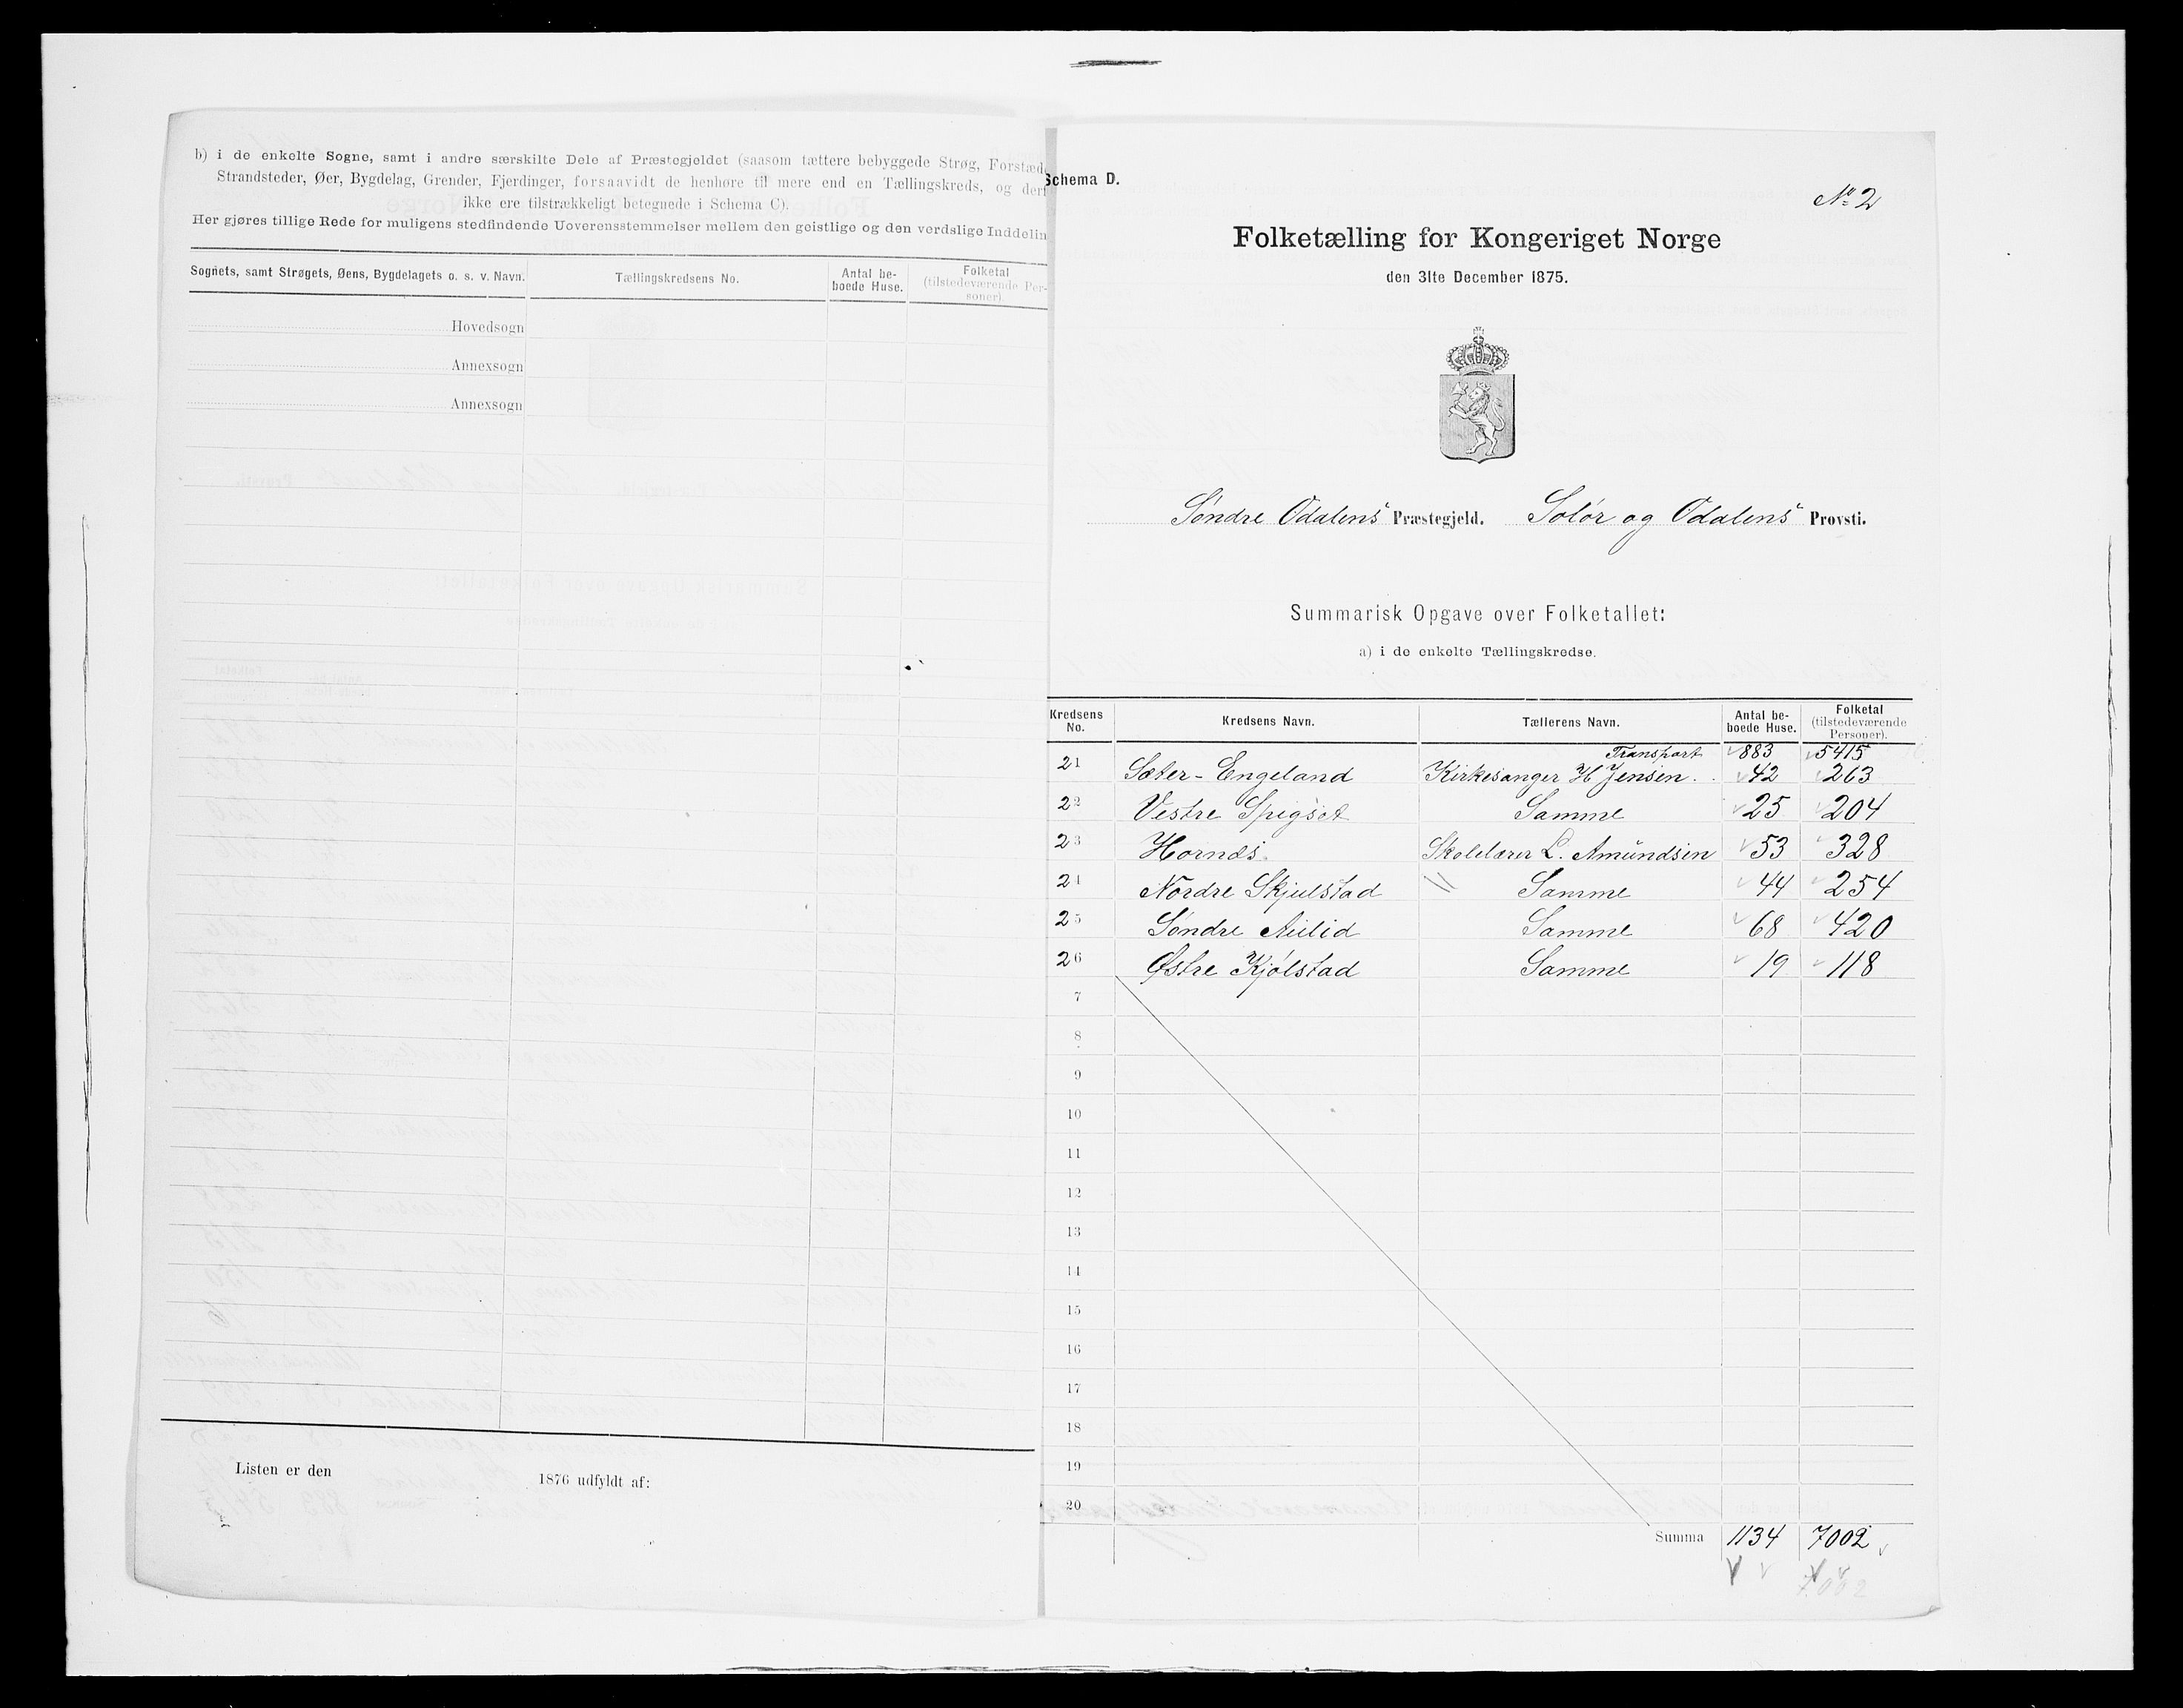 b) i de enkelte Sogne, samt i andre særskilte Dele af Præstegjeldet (saasom tættere bebyggede Strøg, Forstæd
Strandsteder, Øer, Bygdelag, Grender, Fjerdinger, forsaavidt de henhøre til mere end en Tællingskreds, og der
ikke ere tilstrækkeligt betegnede i Schema C).
Her gjøres tillige Rede for muligens stedfindende Uoverensstemmelser mellem den geistlige og den verdslige Inddelin
Sognets, samt Strøgets, Øens, Bygdelagets o. s. v. Navn. Tællingskredsens No. Antal be-boede Huse. Folketal (tilstedeværende Per-soner).
Hovedsogn
Annexsogn
Annexsogn
Listen er den 1876 udfyldt af:
Schema D.
No 2
Folketælling for Kongeriget Norge
den 31te December 1875.
Søndre Odalens Præstegjeld. Solør og Odalens Provsti.
Summarisk Opgave over Folketallet:
a) i de enkelte Tællingskredse.
Kredsens No. Kredsens Navn. Tællerens Navn. Antal be-boede Huse. Folketal (tilstedeværende Personer).
Transport 883 5415
21 Sæter-Engeland Kirkesanger H Jensen. 42 263
22 Vestre Spigset Samme 25 204
23 Hornæs. Skolelærer L. Amundsen 53 328
24 Nordre Skjulstad Samme 44 254
25 Søndre Aulid Samme 68 420
26 Østre Kjølstad Samme 19 118
7
8
9
10
11
12
13
14
15
16
17
18
19
20
Summa 1134 7002
7002